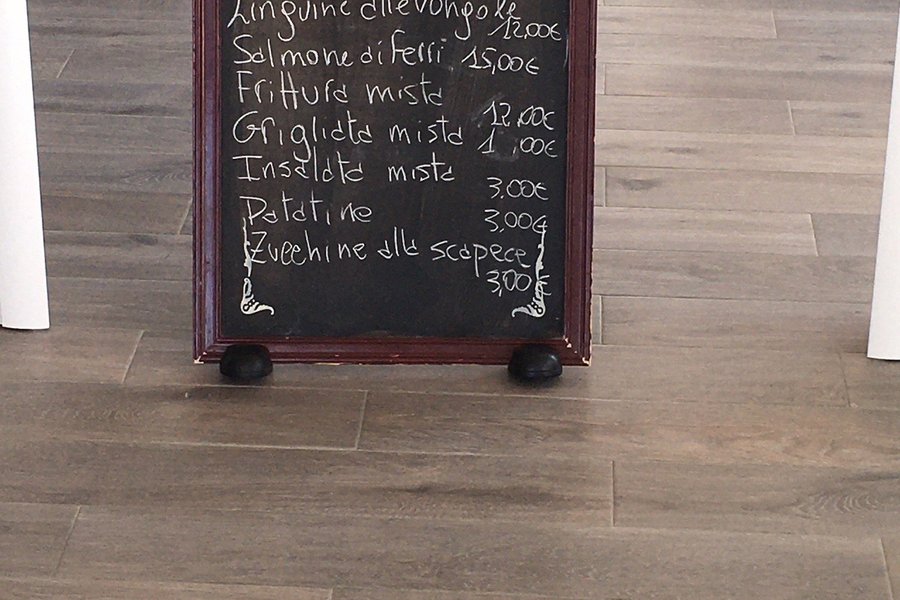 Linguine alle vongole
12,00€
Salmone di Ferri 15,00€
Frittura mista
12,00€
Grigliata mista
Insalata mista
3,00€
Patatine
3,00€
Zucchine alla scapece
3,00€